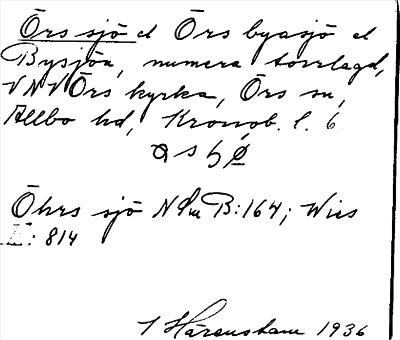 Örs sjö el Örs byasjö el
Bysjön, numera torrlagd,
VNV Örs kyrka, Örs sn,
Allbo hd, Kronob. l. 6
Öhrs sjö NSm B:164; Wies
II: 814
1 Härenstam 1936